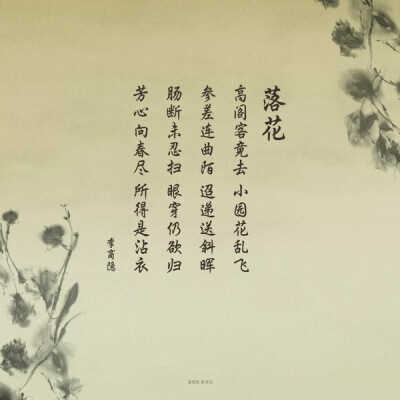 落花
高阁客竟去 小园花乱飞
参差连曲陌 迢递送斜晖
肠断未忍扫 眼穿仍欲归
芳心向春尽 所得是沾衣
李商隐